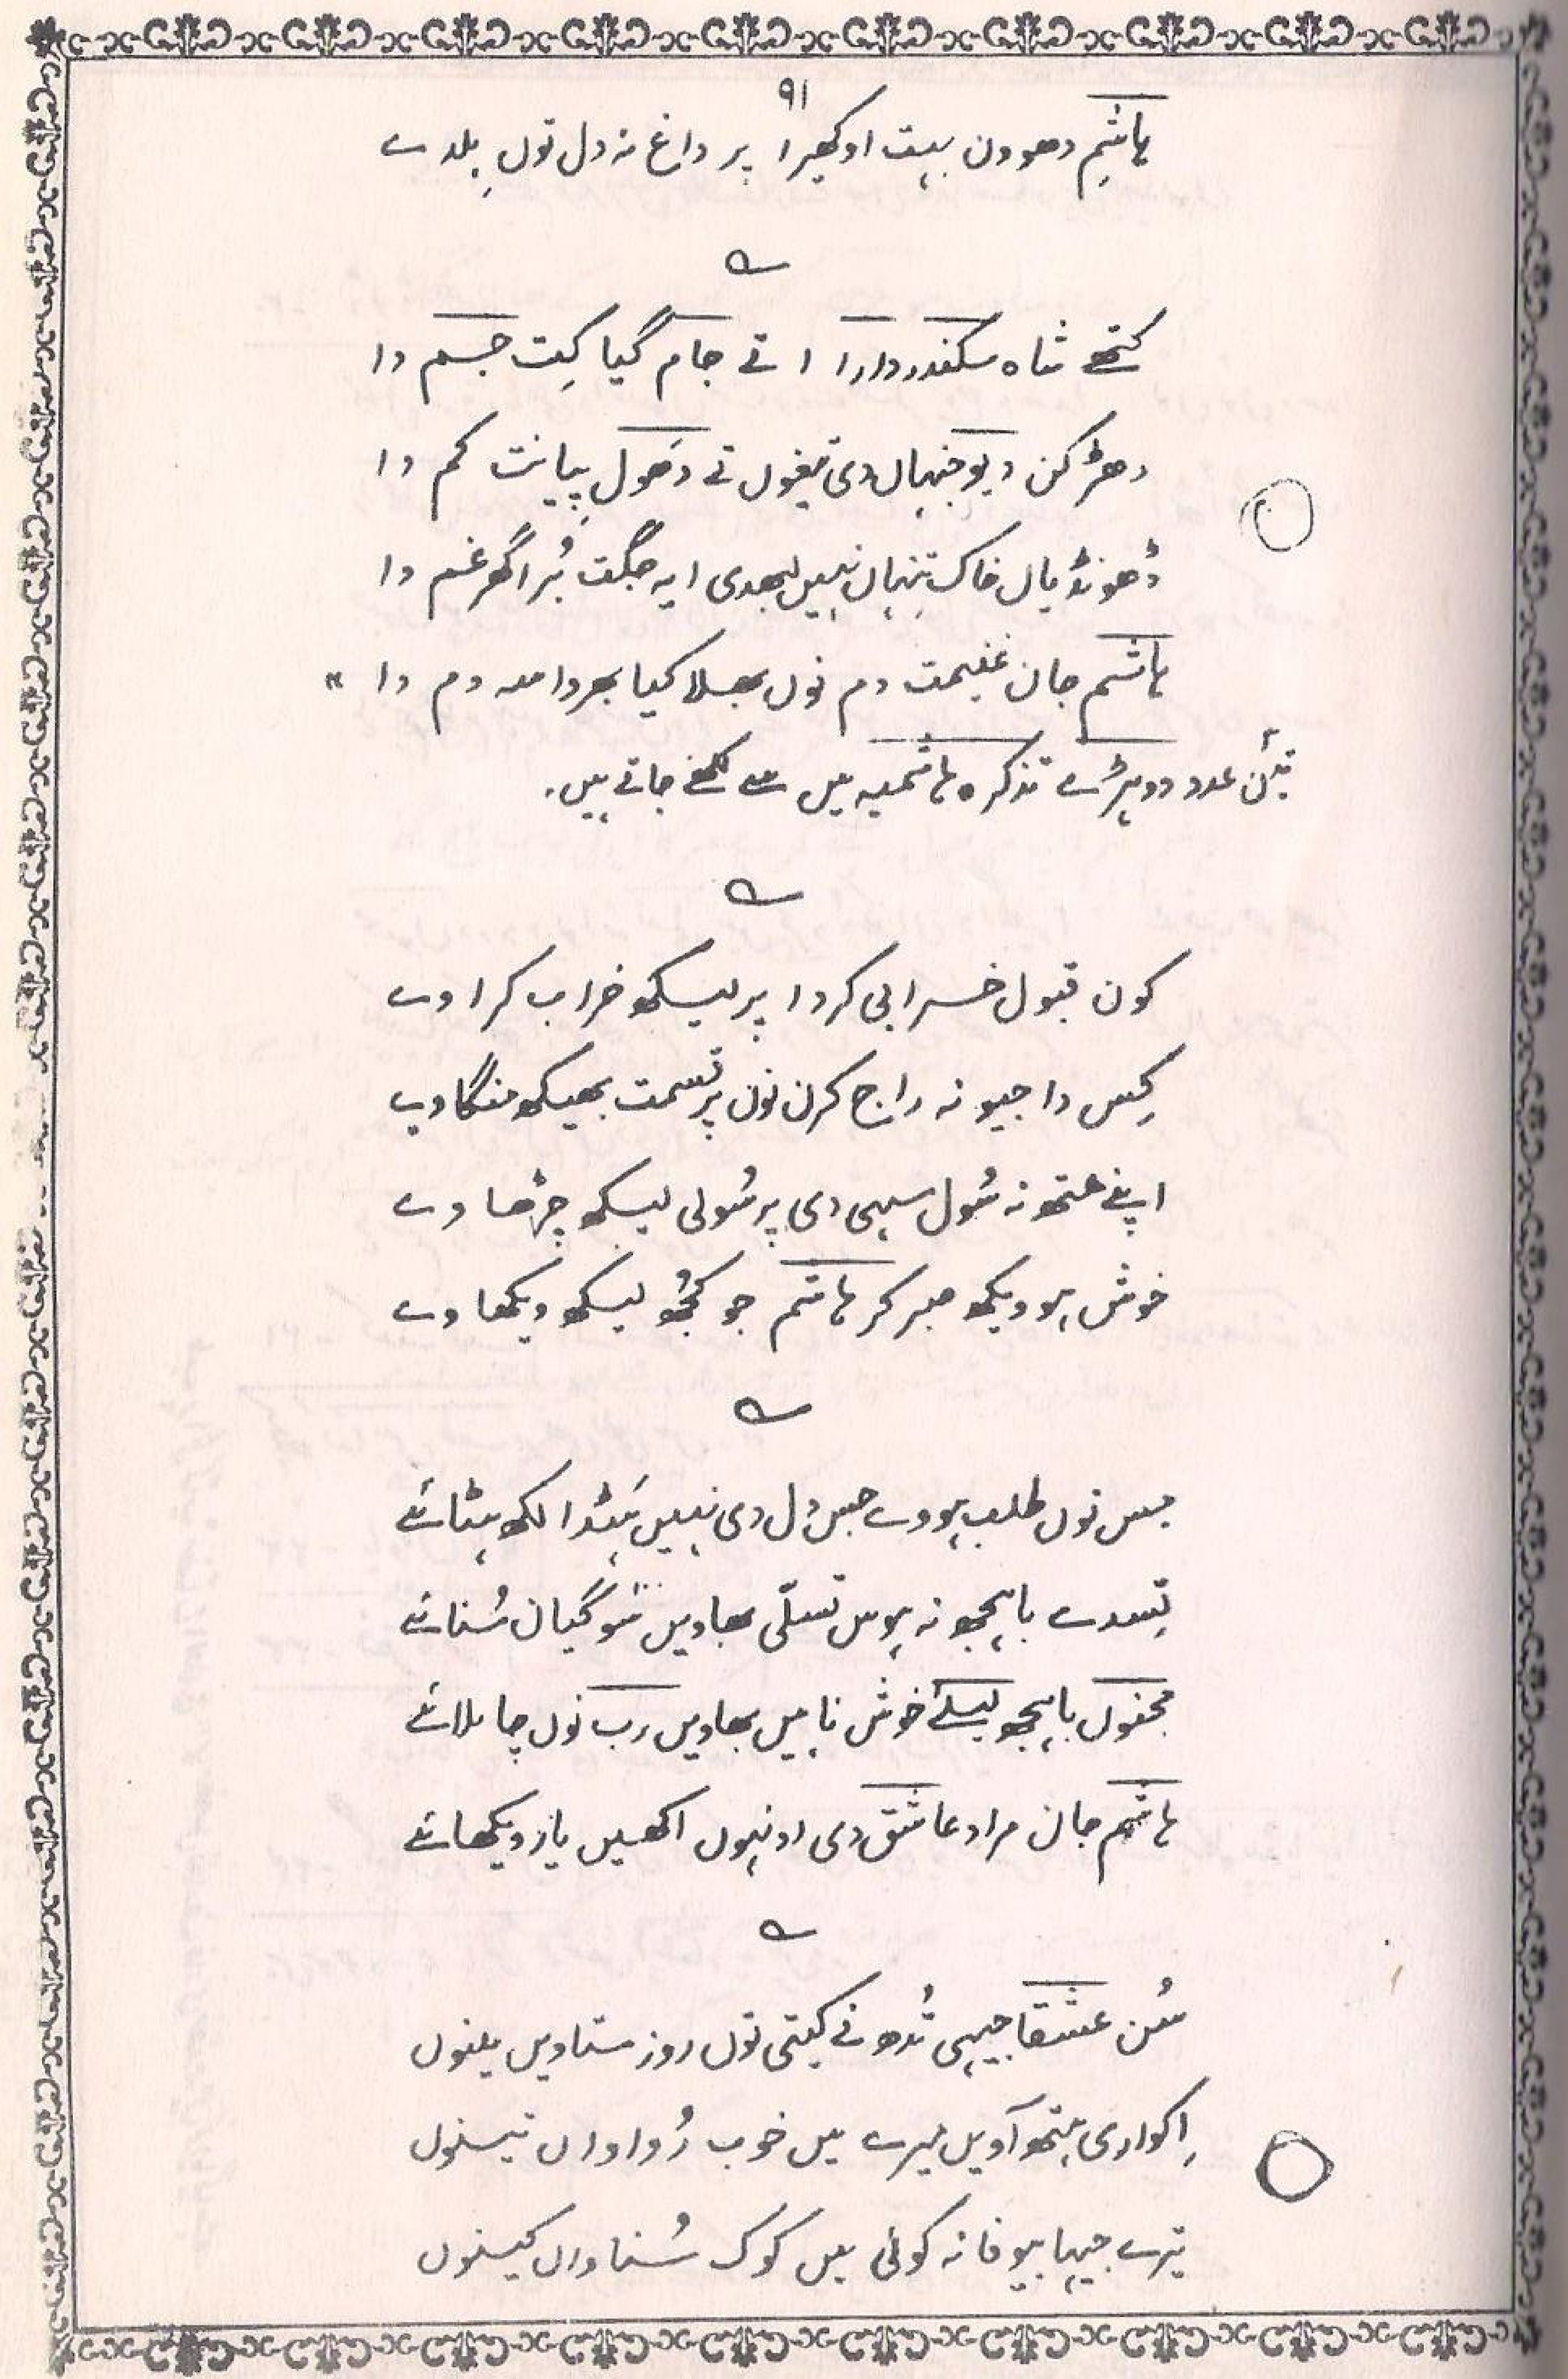 ۹۱
ہاشم دھوون بہت اوکھیرا پر داغ نہ دل توں ہلدے
کتھے شاہ سکندر دارا اتے جام گیا کِت جسم دا
دھڑکن دیو جنہاں دی تیغوں تے دَھول پِیا نت کم دا
ڈھونڈیاں خاک تِنہاں نہیں لبھدی ایہ جگت بُرا گھر غم دا
ہاشم جان غنیمت دم نوں بھلا کیا بھرواسہ دم دا "
تین عدد دوہڑے تذکرہ ہاشمیہ میں سے لکھے جاتے ہیں۔
کون قبول خرابی کردا پر لیکھ خراب کراوے
کِس دا جیو نہ راج کرن نوں پر قسمت بھیکھ منگاوے
اپنے ہتھ نہ سُول سہی دی پر سُولی لیکھ چڑھاوے
خوش ہو ویکھ صبر کر ہاشم جو کُجھ لیکھ ویکھاوے
جس نوں طلب ہووے جس دل دی نہیں ہَٹدا لکھ ہٹائے
تِسدے باہجھ نہ ہوس تسلّی بھاویں سو گیان سُنائے
مجنوں باہجھ لیلےٰ خوش ناہیں بھاویں رب نوں چا ملائے
ہاشم جان مراد عاشق دی اونہوں اکھیں یار ویکھائے
سُن عشقا جیہی تُدھ نے کیتی توں روز ستاویں مینوں
اِکواری ہتھ آویں میرے میں خوب رُواواں تینوں
تیرے جیہا بیوفا نہ کوئی میں کوک سُناواں کینوں